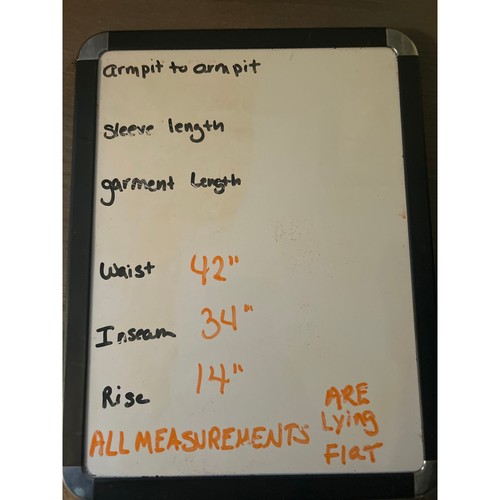 armpit to armpit
sleeve length
garment Length
Waist 42"
Inseam 34"
Rise 14"
ALL MEASUREMENTS ARE
Lying
Flat